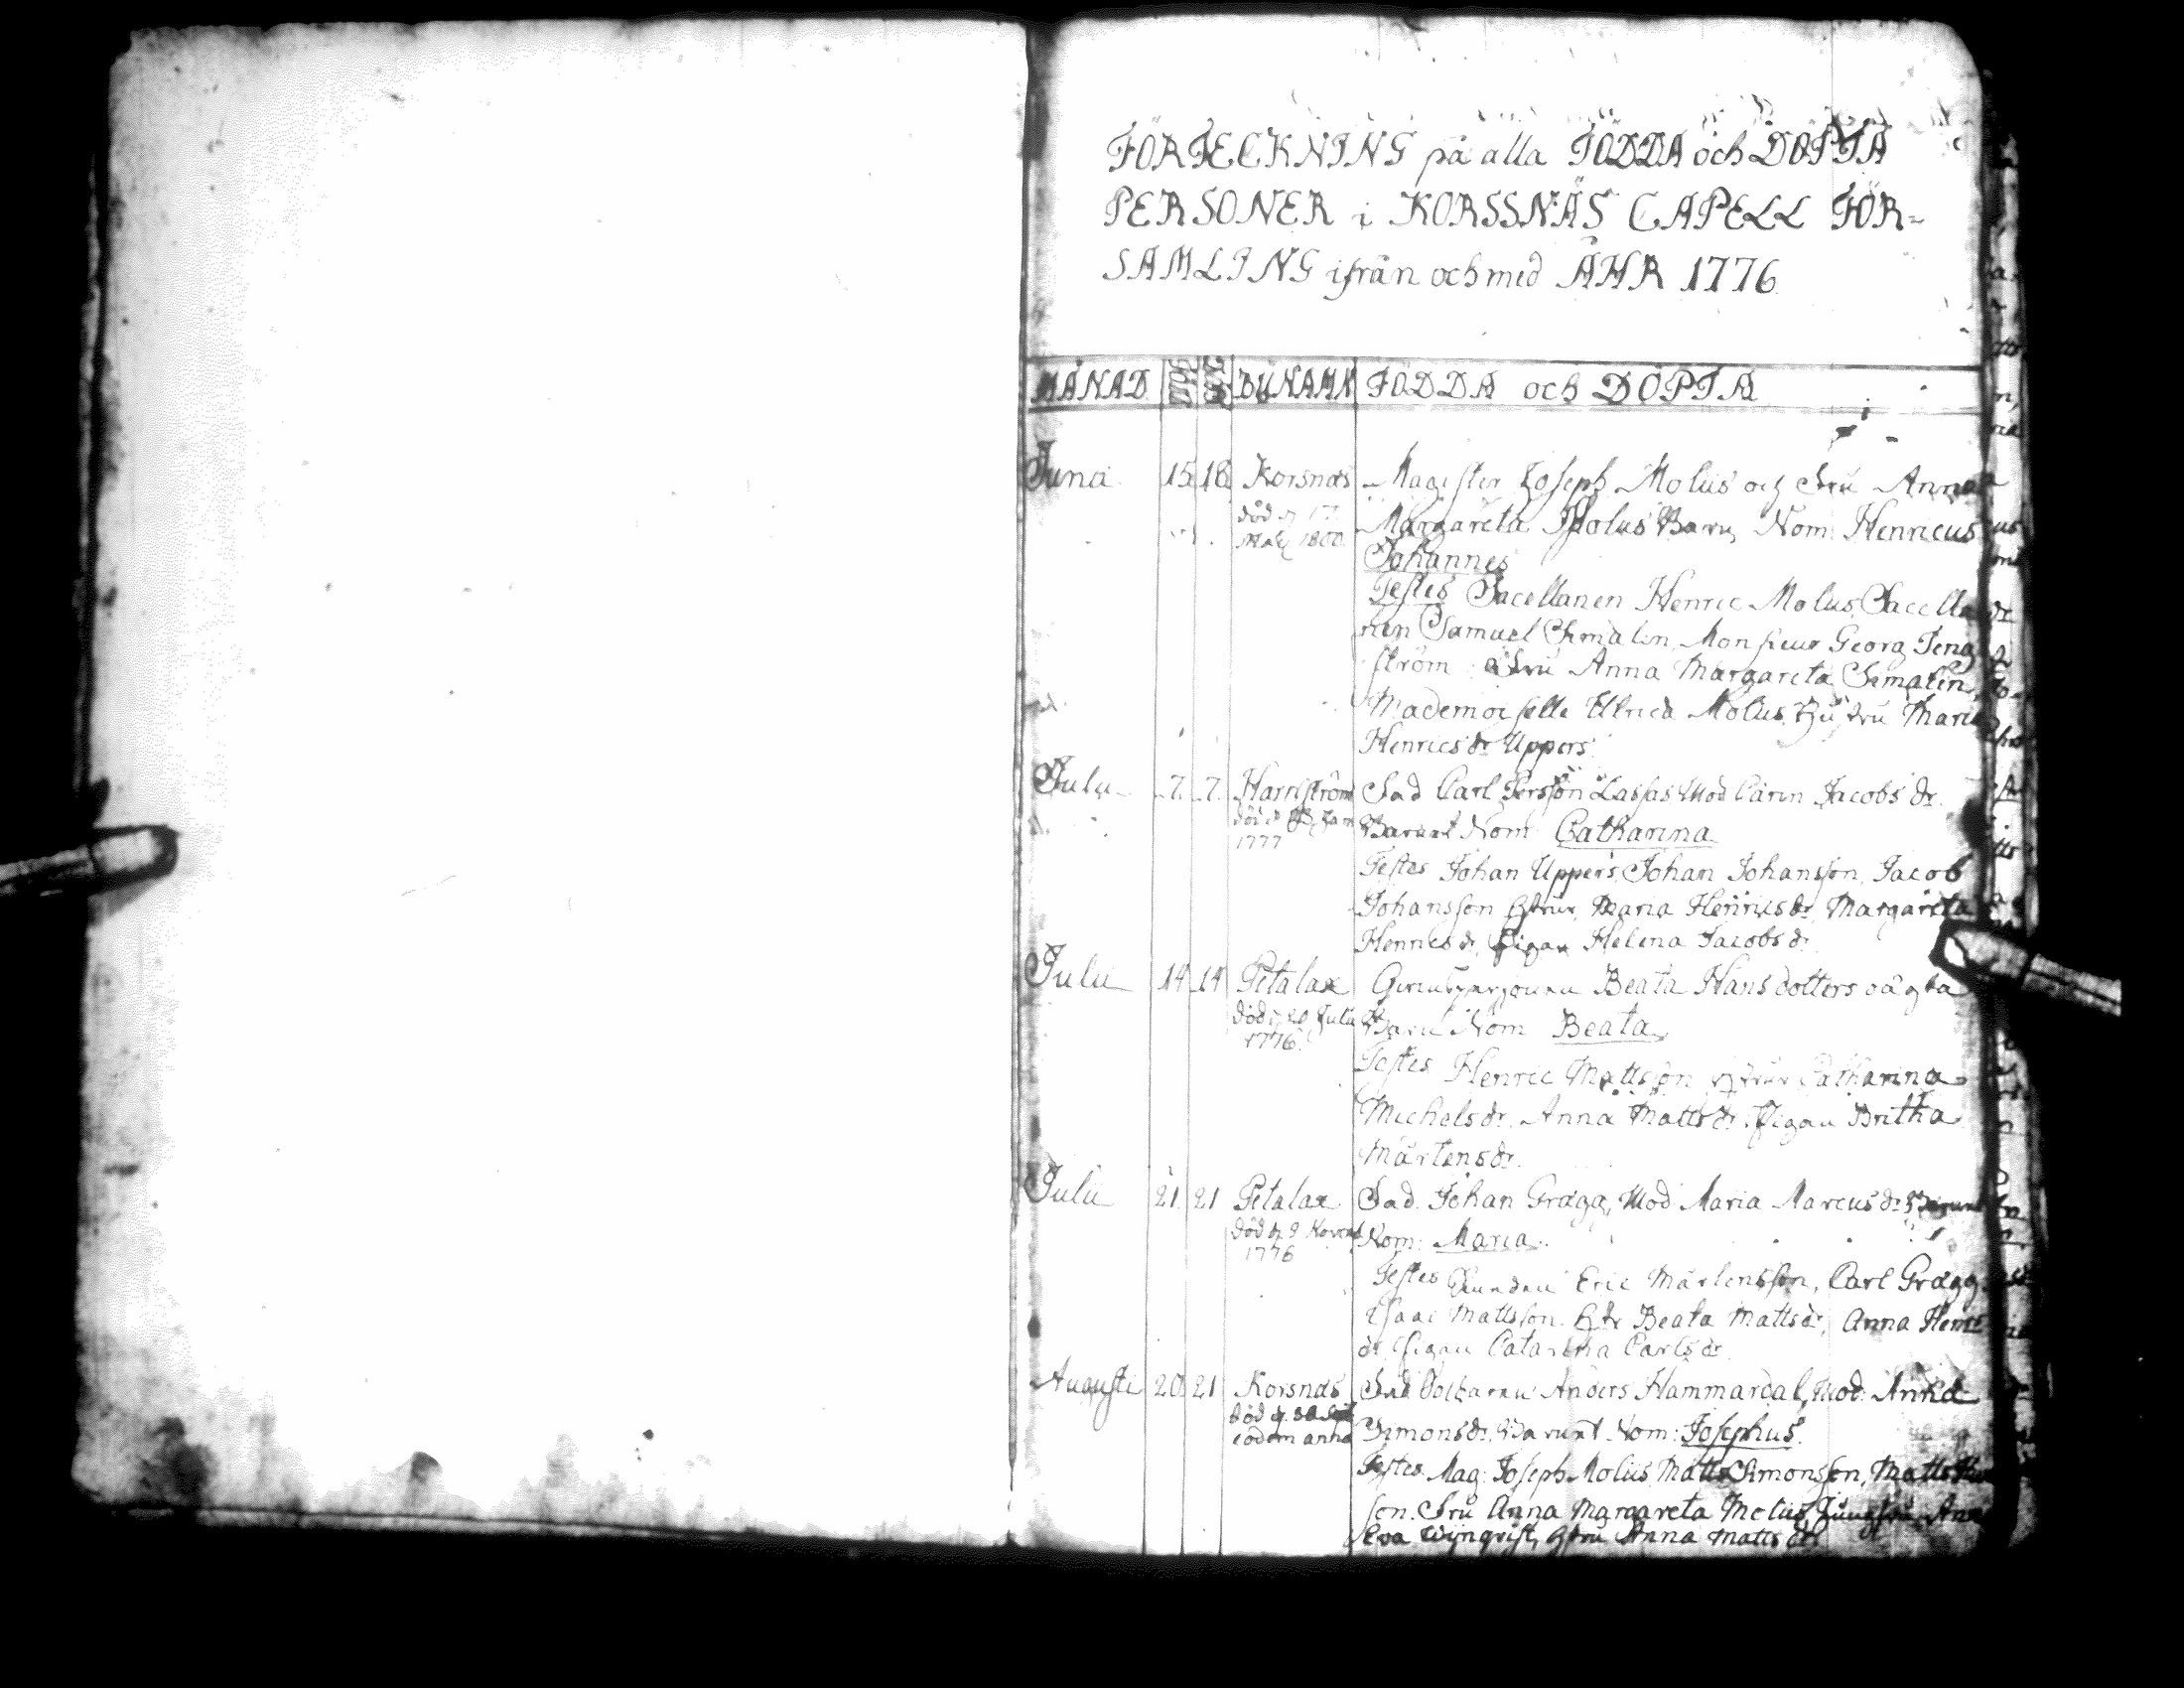 FÖRTECKNING på alla FÖDDA och DÖPTA
PERSONER i KORSSNÄS CAPELL FÖR=
SAMLING ifrån och med ÅHR 1776
MÅNAD BŸNAMN FÖDDA och DÖPTA
Junii 15 18 Korsnäs Magister Joseph Molius och Fru Anna
död d 17 Margareta Molius Barn Nom: Henricus
Maij 1800. Johannes
Testes Sacellanen Henric Molius, Sacella
nen Samuel Simalin, Monsieur Georg Teng
ström Fru Anna Margareta Simalin,
Mademoiselle Ulrica Molius, Hustru Maria
Henrics dr Uppers
Julii 7. 7. Harrström Fad Carl Persson Lassas Mod Carin Jacobs dr.
död Jan Barnet Nom Catharina
1777
Testes Johan Uppers, Johan Johansson, Jacob
Johansson Hstrur Maria Henricsdr, Margareta
Henricsdr, Pigan Helena Jacobsdr
Julii 14 14 Petalax Beata Hansdotters oägta
död d 20 Julii Barn Nom Beata
1776.
Testes Henric Mattsson Hstrur Catharina
Michelsdr, Anna Mattsdr. Pigan Britha
Mårtensdr.
Julii 21 21 Petalax Fad. Johan Grägg, Mod Maria Marcusdr Barnet
död d 9 Novemb Nom: Maria.
1776
Testes Eric Mårtensson, Carl Grägg
Isaac Mattsson. Hstr Beata Mattsdr, Anna Henrics
dr, Pigan Catarina Carlsdr
Augusti 20 21 Korsnäs Fad Anders Hammardal, Mod: Anna
död d. 30 Sept Simonsdr. Barnet Nom: Josephus.
eodem anno
Testes Mag: Joseph Molius, Matts Simonsson, Matts
son. Fru Anna Margareta Molius, Jungfru Anna
Eva Wijnqvist, Hstru Anna Mattsdr